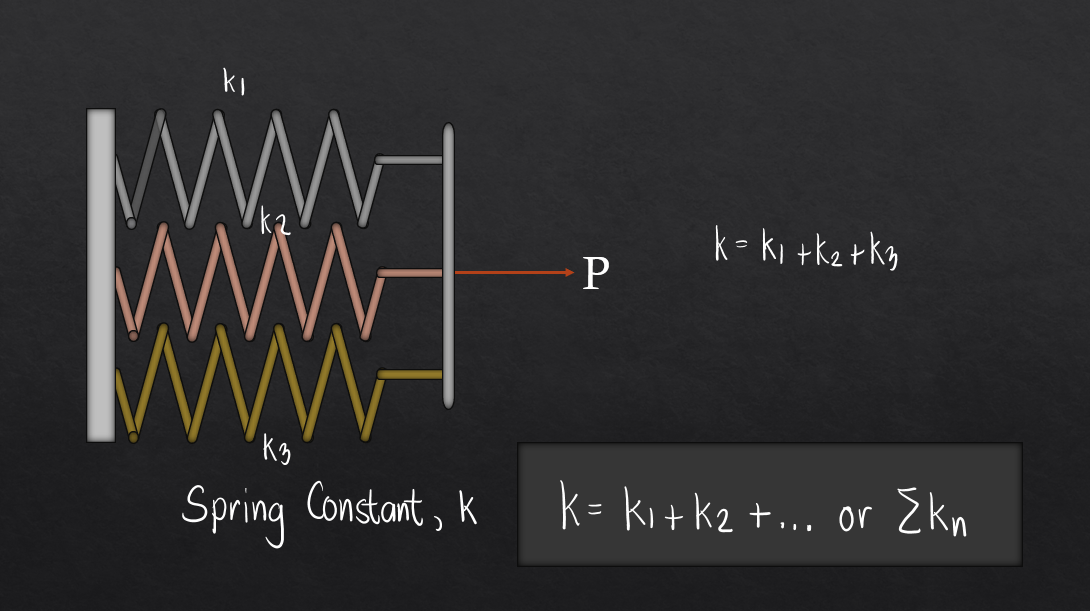 k1
k2
P
k = k1 + k2 + k3
k3
Spring Constant, k
k = k1 + k2 + ... or Σkn